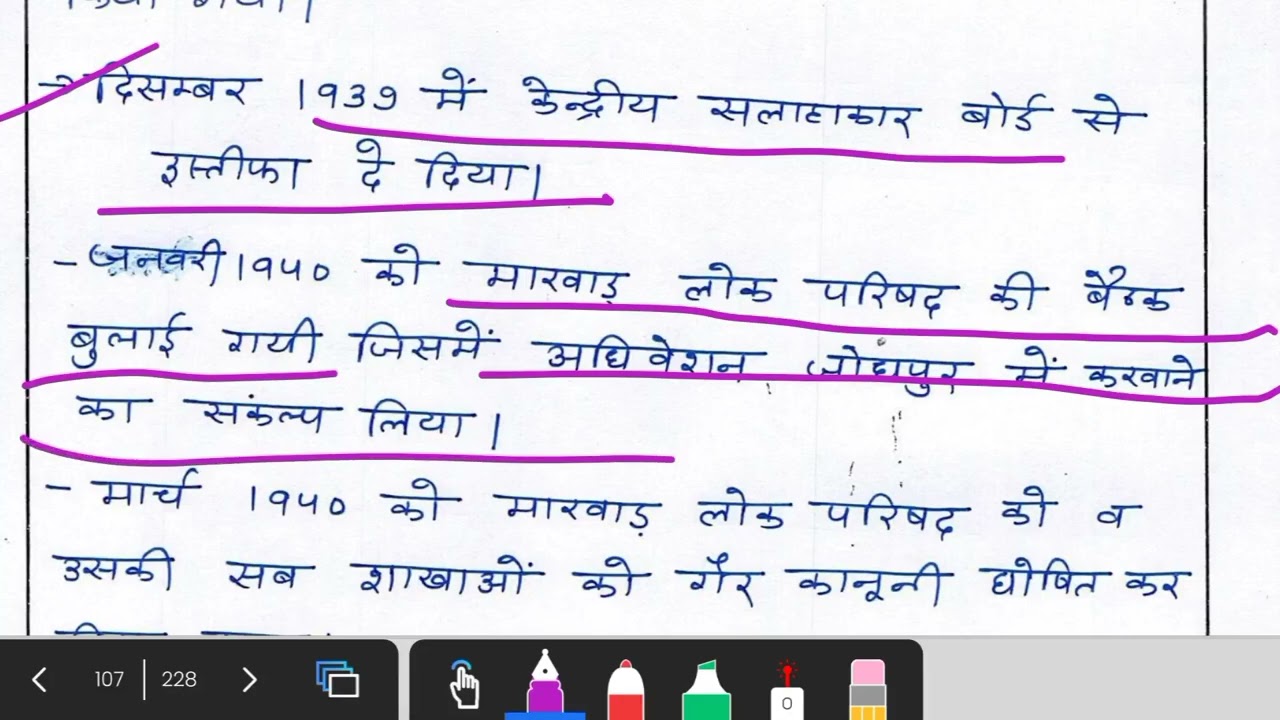 किया गया।
→ दिसम्बर 1939 में केन्द्रीय सलाहाकार बोर्ड से
इस्तीफा दे दिया।
- जनवरी 1940 को मारवाड़ लोक परिषद की बैठक
बुलाई गयी जिसमें अधिवेशन जोधपुर में करवाने
का संकल्प लिया।
- मार्च 1940 को मारवाड़ लोक परिषद को व
उसकी सब शाखाओं को गैर कानूनी घोषित कर
107 228
0